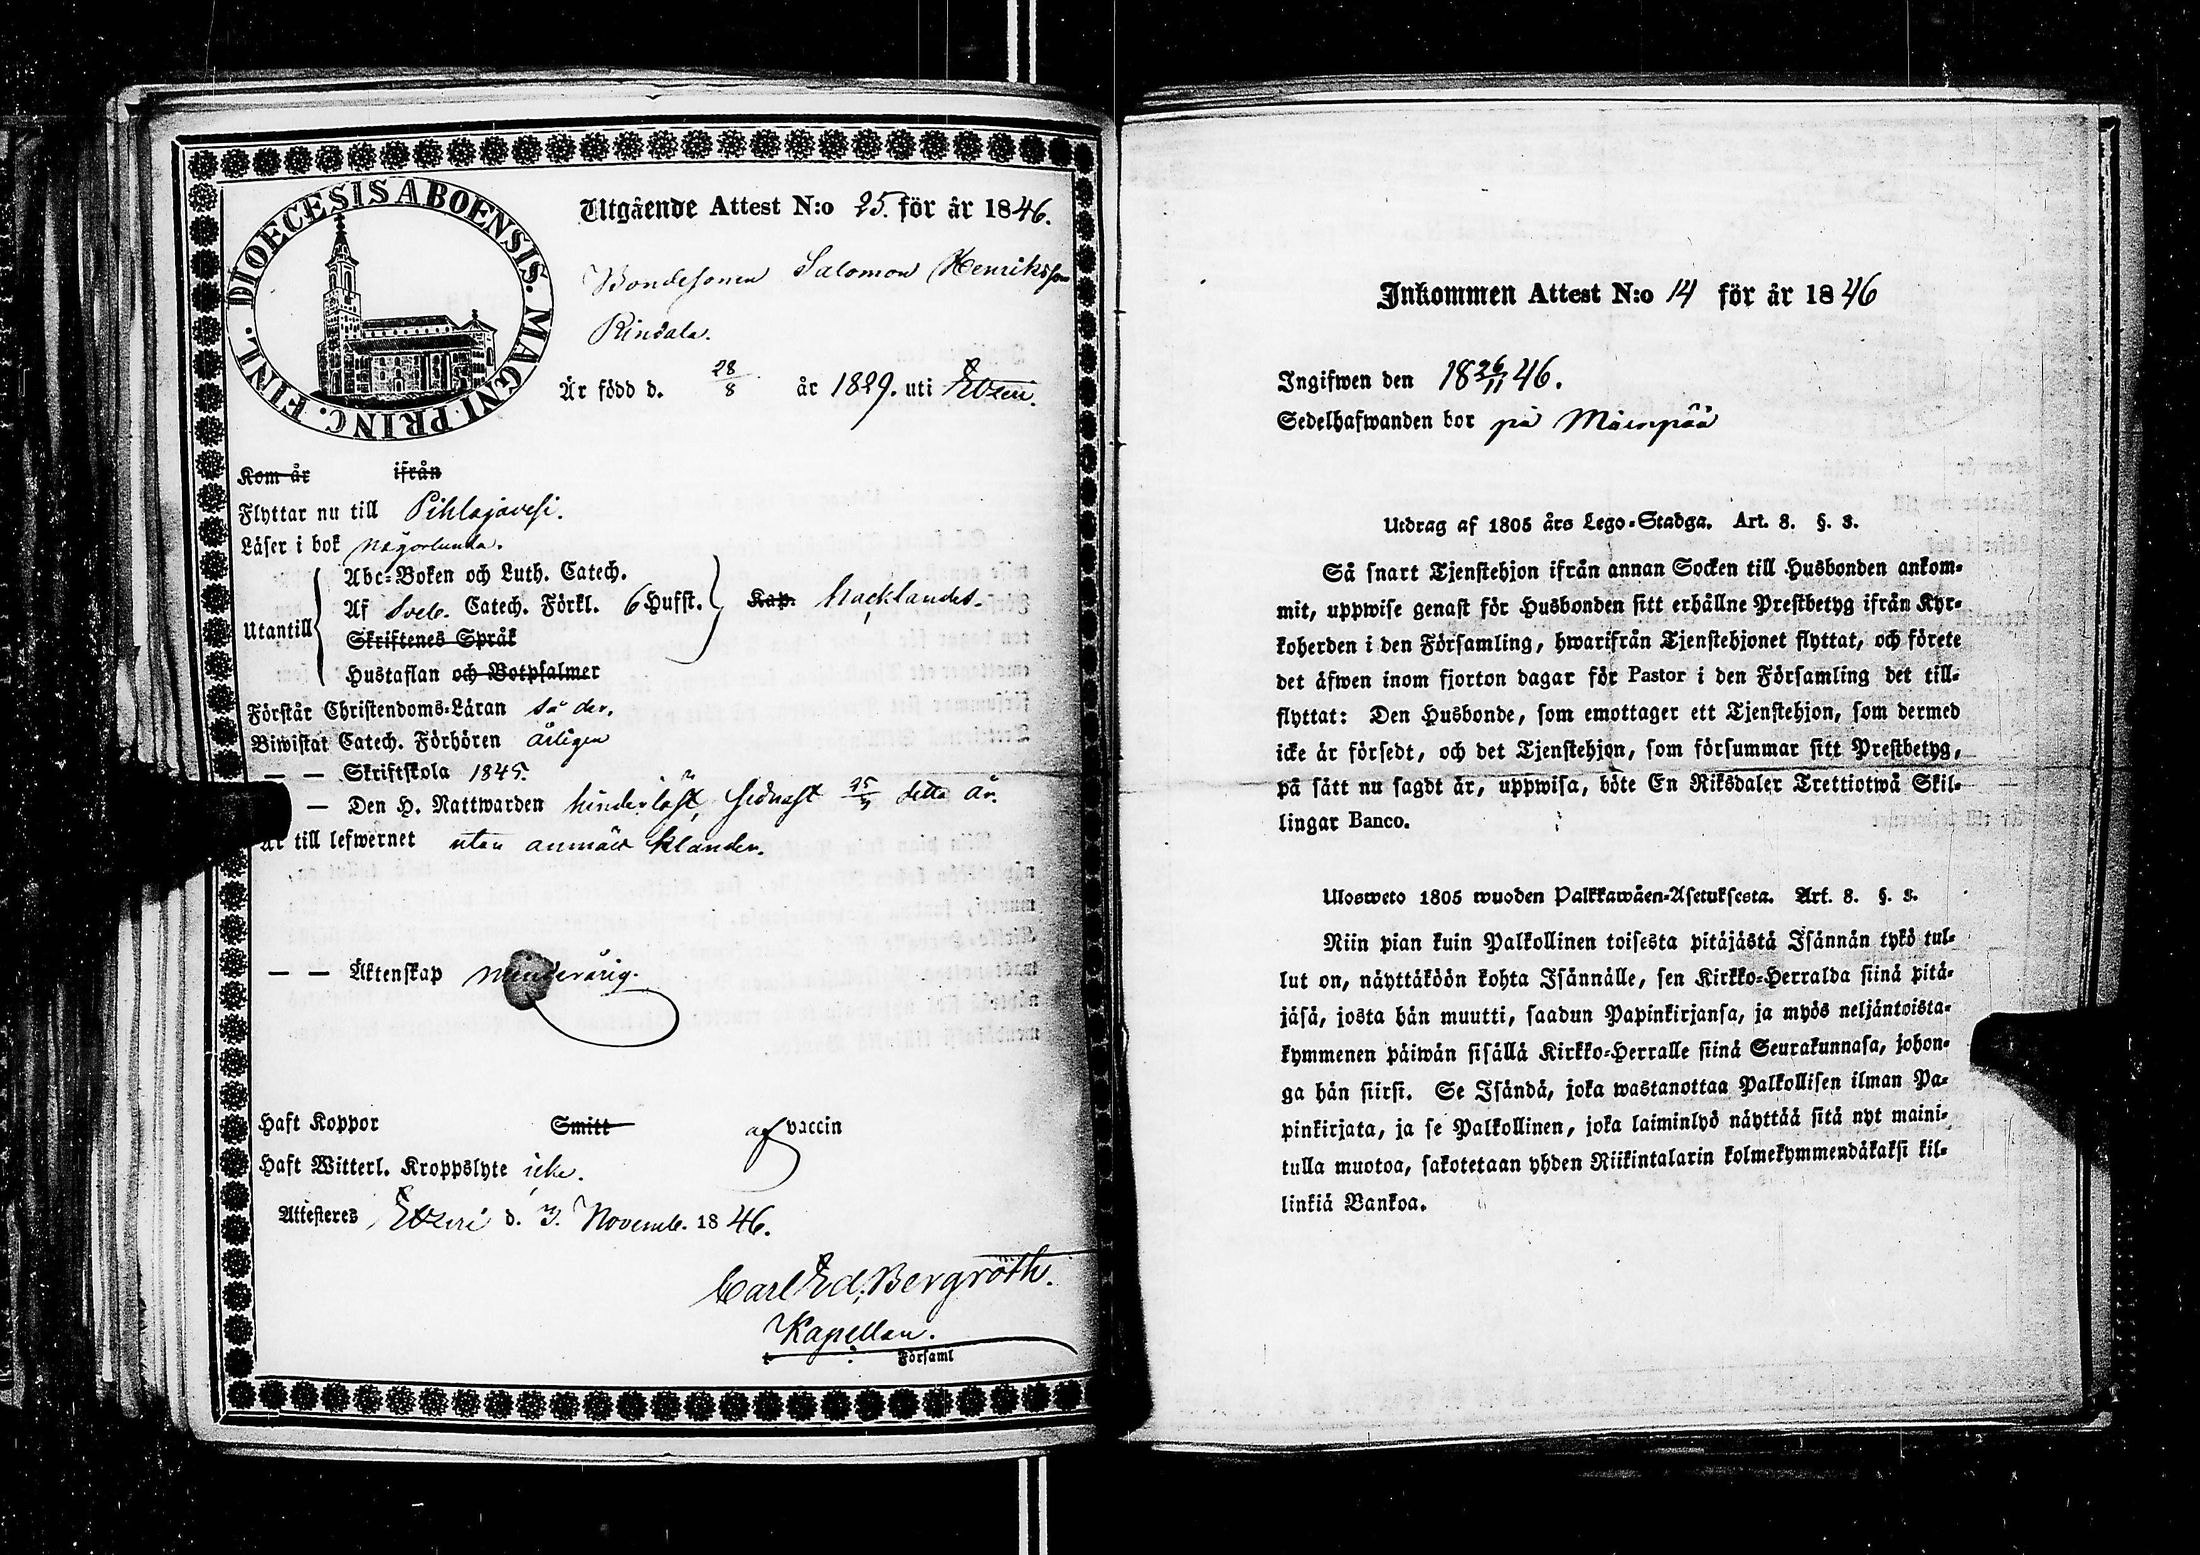 DIOECESIS ABOENSIS. MAGNI. PRINC. FINL.
Utgående Attest N:o 25. för år 1846.
Bondesonen Salomon Henriksson
Rindala.
Är född d. 28/8 år 1829. uti Etzeri.
Kom år ifrån
Flyttar nu till Pihlajavesi.
Läser i bok någorlunda.
Abc-Boken och Luth. Catech.
Af Sveb. Catech. Förkl. 6 Hufst. Kap. hacklandes.
Utantill
Skriftenes Språk
Hustaflan och Botpsalmer
Förstår Christendoms-Läran så der.
Biwistat Catech. Förhören årligen
— — Skriftskola 1845.
— Den H. Nattwarden hinderlöst, sednast 25/ detta år.
Är till lefwernet utan anmäldt klander.
— — Äktenskap minderårig.
Haft Koppor Smitt af vaccin
Haft Witterl. Kroppslyte icke.
Attesteres Etzeri d. 3. Novemb. 1846.
Carl Ed. Bergroth.
Kapellan.
Församl
Inkommen Attest N:o 14 för år 1846
Ingifwen den 18 26/11 46.
Sedelhafwanden bor på Mäenpää
Utdrag af 1805 års Lego-Stadga. Art. 8. §. 3.
Så snart Tjenstehjon ifrån annan Socken till Husbonden ankom-
mit, uppwise genast för Husbonden sitt erhållne Prestbetyg ifrån Kyr-
koherden i den Församling, hwarifrån Tjenstehjonet flyttat, och förete
det äfwen inom fjorton dagar för Pastor i den Församling det till-
flyttat: Den Husbonde, som emottager ett Tjenstehjon, som dermed
icke är försedt, och det Tjenstehjon, som försummar sitt Prestbetyg,
på sätt nu sagdt är, uppwisa, böte En Riksdaler Trettiotwå Skil-
lingar Banco.
Ulosweto 1805 wuoden Palkkawäen-Asetuksesta. Art. 8. §. 3.
Niin pian kuin Palkollinen toisesta pitäjästä Isännän tykö tul-
lut on, näyttäköön kohta Isännälle, sen Kirkko-Herralda siinä pitä-
jäsä, josta hän muutti, saadun Papinkirjansa, ja myös neljäntoista-
kymmenen päiwän sisällä Kirkko-Herralle siinä Seurakunnasa, johon-
ga hän siirsi. Se Isändä, joka wastanottaa Palkollisen ilman Pa-
pinkirjata, ja se Palkollinen, joka laiminlyö näyttää sitä nyt maini-
tulla muotoa, sakotetaan yhden Riikintalarin kolmekymmendäkaksi kil-
linkiä Bankoa.